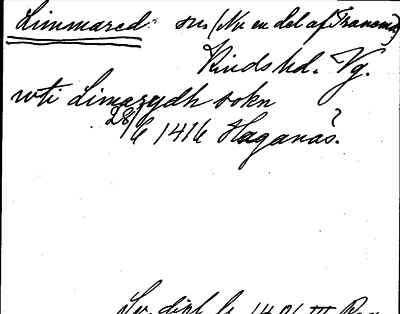 Limmared sn (Nu en del af Tranemo)
Kinds hd. Vg.
wti Limarydh sokn
28/6 1416 Haganäs?
Sv. dipl. fr. 1401 III